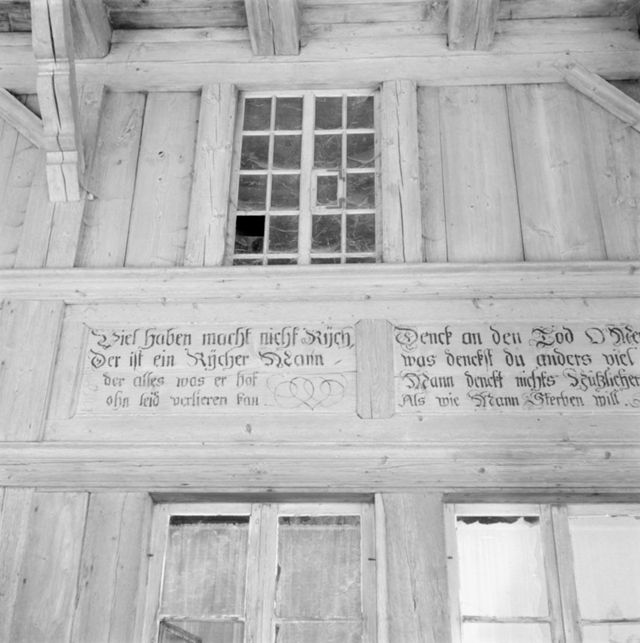 Viel haben macht nicht Rÿch
Der ist ein Rÿcher Mann
der alles was er hat
ohn leid verlieren kan
Denck an den Tod O
was denckst du anders viel
Mann denckt nichts Nützlicher
Als wie Mann Sterben will